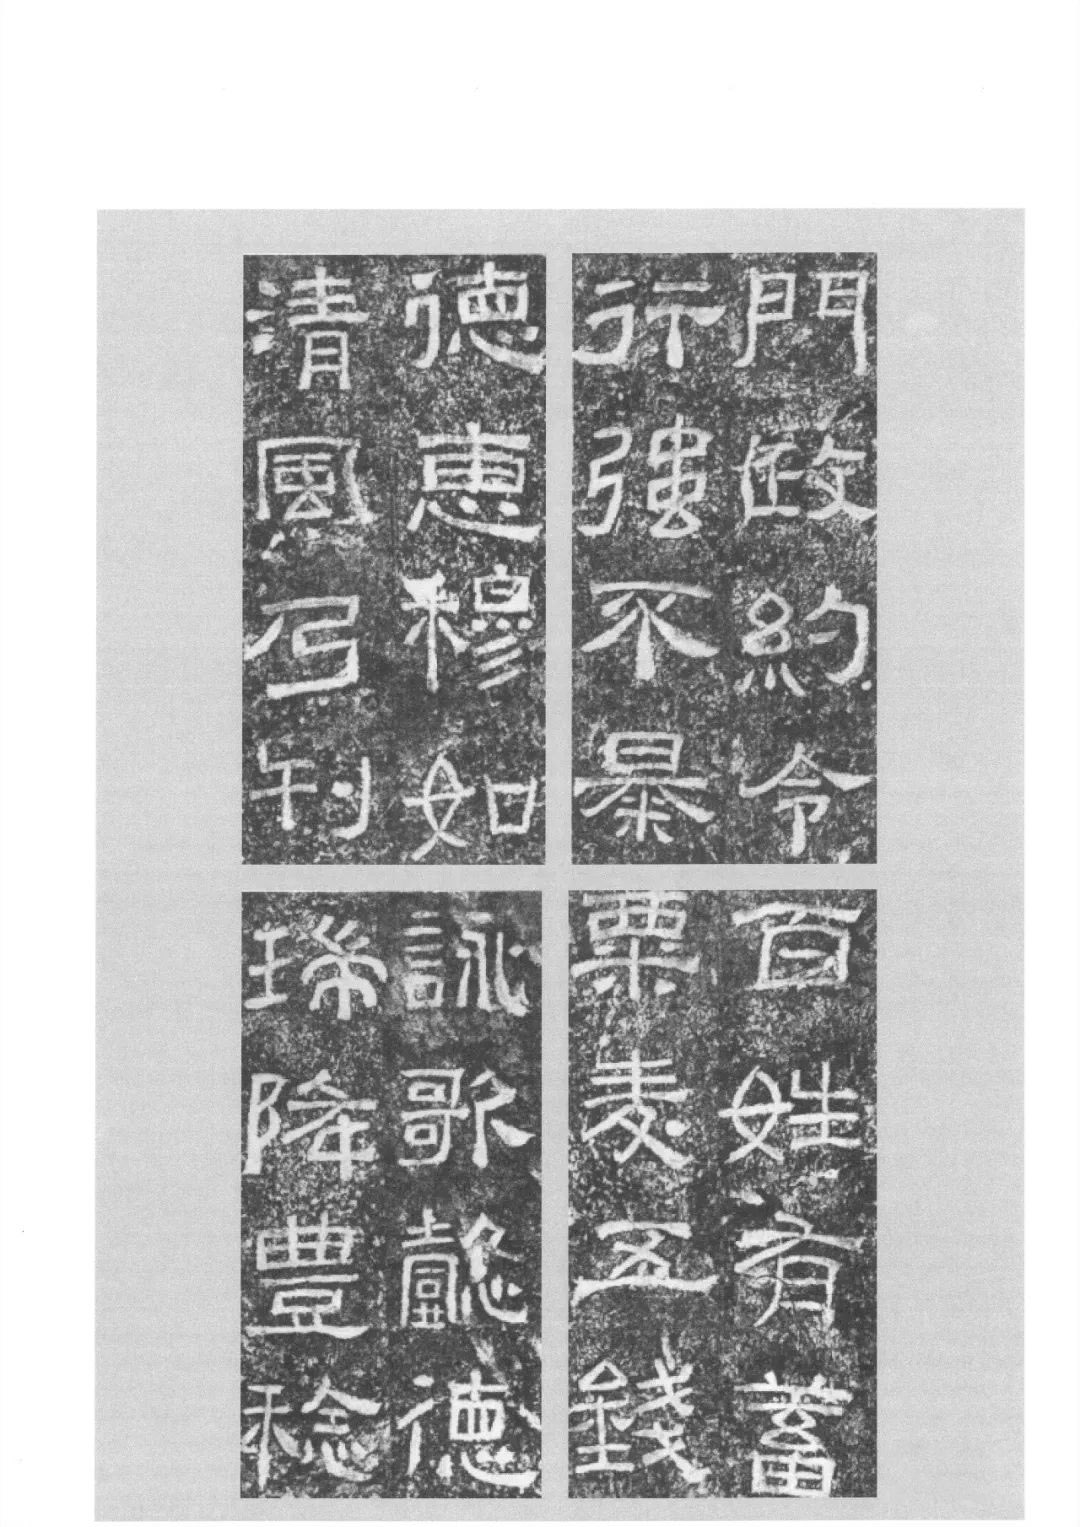 門政約令
行強不暴
德惠穆如
清風乃刊
百姓有蓄
粟麥五錢
詠歌懿德
瑞降豐稔